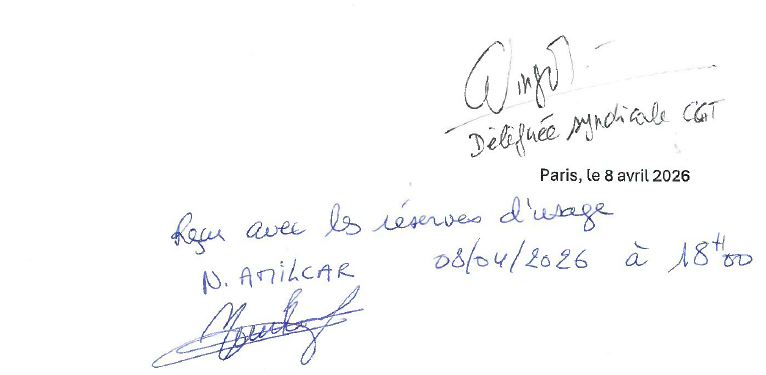 Déléguée syndicale CGT
Paris, le 8 avril 2026
Reçu avec les réserves d'usage
N. AMILCAR 08/04/2026 à 18H00